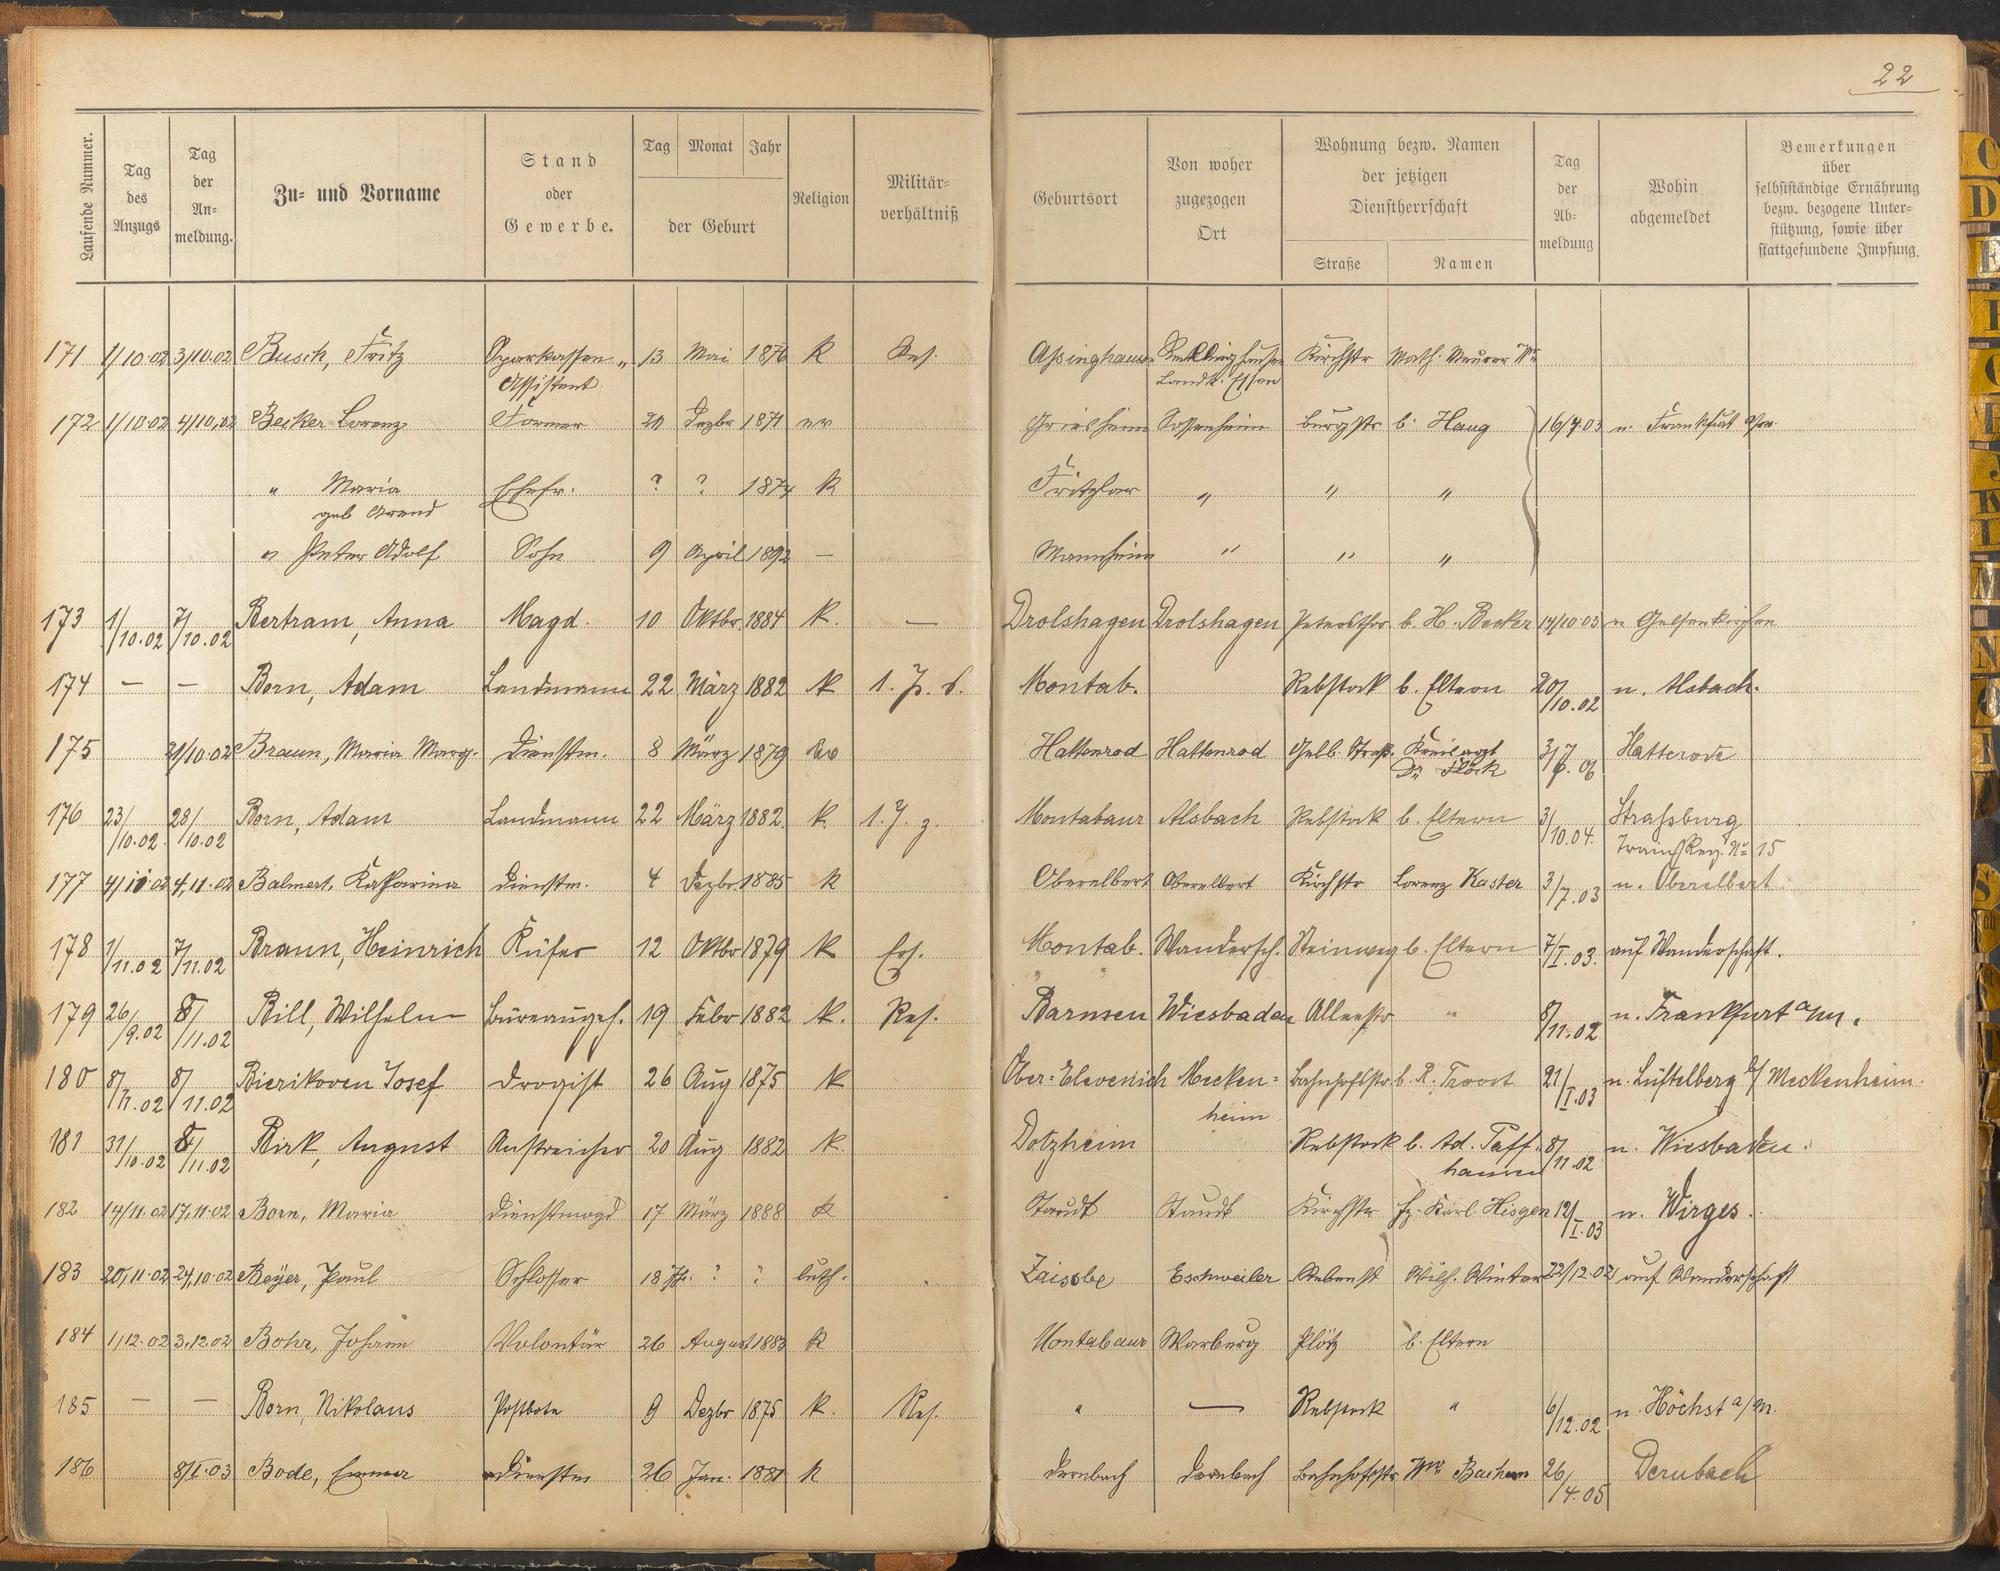 22
Laufende Nummer. Tag des Anzugs Tag der An= meldung. Zu= und Vorname Stand oder Gewerbe. Tag Monat Jahr der Geburt Religion Militär= verhältniß Geburtsort Von woher zugezogen Ort Wohnung bezw. Namen der jetzigen Dienstherrschaft Straße Namen Tag der Ab= meldung Wohin abgemeldet Bemerkungen über selbstständige Ernährung bezw. bezogene Unter= stützung, sowie über stattgefundene Impfung.
171 1/10.02 3/10.02 Busch, Fritz Sparkassen= 13 Mai 1876 K Res. Assinghausen Kirchstr Math. Meurer Wr
Assistent Landk. Essen
172 1/10.02 4/10.02 Becker Lorenz Former Dezbr 1871 ev Griesheim Sossenheim burgstr b. Haug 16/7.03 n. Frankfurt
" Maria Ehefr. ? ? 1874 K Fritzlar " " "
geb Arend
" Peter Adolf Sohn 9 April 1892 — Mannheim " " "
173 1/10.02 7/10.02 Bertram, Anna Magd. 10 Oktbr. 1884 K. — Drolshagen Drolshagen Petersthor b. H. Becker 14/10.03 n Gelsenkirchen
174 — — Born, Adam Landmann 22 März 1882 K Montab. Rebstock b. Eltern 20/10.02 n. Alsbach.
175 21/10.02 Braun, Maria Marg. Dienstm. 8 März 1879 ev Hattenrod Hattenrod Gelb. Straß. Kreisarzt Hatterode
Dr Flöck
176 23/10.02 28/10.02 Born, Adam Landmann 22 März 1882. K. 1. J. z. Montabaur Alsbach Rebstock b. Eltern 3/10.04. Straßburg
Train Reg. No 15
177 4/11.02 4.11.02 Balmert, Katharina Dienstm. 4 Dezbr. 1885 K Oberelbert Oberelbert Kirchstr Lorenz Kaster 3/7.03 n. Oberelbert
178 1/11.02 7/11.02 Braun, Heinrich Küfer 12 Oktbr 1879 K Ers. Montab. Wandersch. Steinweg b. Eltern 7/I.03. auf Wanderschaft.
179 26/9.02 8/11.02 Bill, Wilhelm Büreaugeh. 19 Febr 1882 K. Res. Barmen Wiesbaden Alleestr " 8/11.02 n. Frankfurt a/m.
180 8/11.02 8/11.02 Bierikoven Josef Drogist 26 Aug 1875 K Ober=Elvenich Mecken= Bahnhofstr b. R. Troost 21/I.03 n. Lüftelberg b/ Meckenheim.
heim
181 31/10.02 8/11.02 Birk, August Anstreicher 20 Aug 1882 K. Dotzheim Rebstock b. Ad. Taff= 8/11.02 n. Wiesbaden.
hausen
182 14/11.02 17.11.02 Born, Maria Dienstmagd 17 März 1888 K Staudt Staudt Kirchstr Karl Hisgen 12/I.03 n. Wirges.
183 20.11.02 24.10.02 Beÿer, Paul Schlosser 18 ? ? luth. Eschweiler Wilh. Winter 22/12.02 auf Wanderschaft
184 1.12.02 3.12.02 Bohr, Johann Volontär 26 August 1883 K Montabaur Warburg Plötz b. Eltern
185 — — Born, Nikolaus Postbote 9 Dezbr 1875 K. Res. " — Rebstock " 6/12.02 n. Höchst a/M.
186 8/I.03 Bode, Emma Dienstm 26 Jan. 1881 K Dernbach Dernbach Bahnhofstr Wwe Bachem 26/4.05 Dernbach